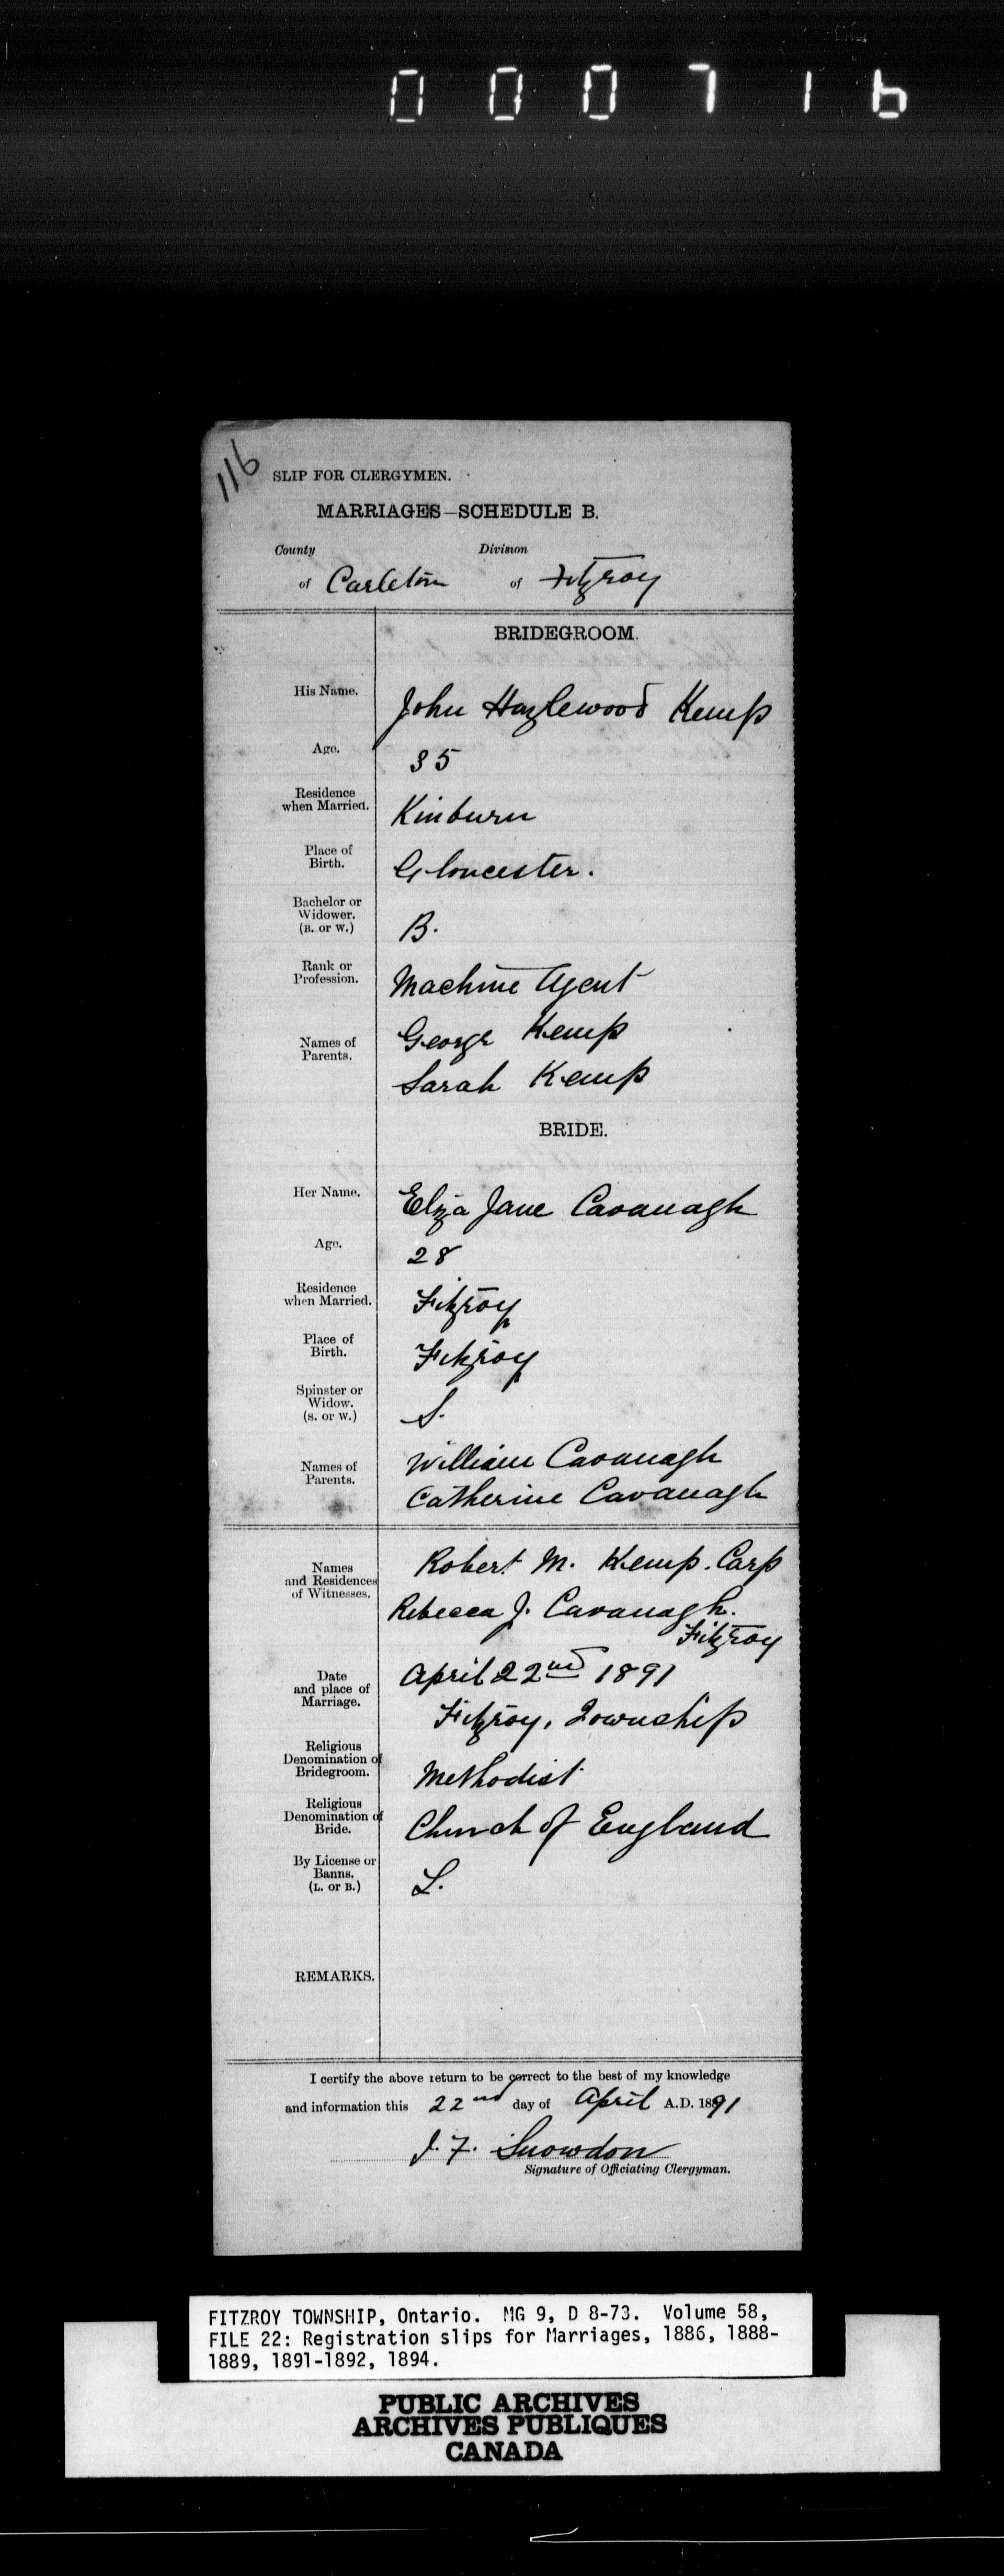 000716
116
SLIP FOR CLERGYMEN.
MARRIAGES—SCHEDULE B.
County Division
of Carleton of Fitzroy
BRIDEGROOM.
His Name. John Hazlewood Kemp
Age. 35
Residence
when Married. Kinburn
Place of
Birth. Gloucester.
Bachelor or
Widower.
(B. or W.) B.
Rank or
Profession. Machine Agent
Names of
Parents. George Kemp
Sarah Kemp
BRIDE.
Her Name. Eliza Jane Cavanagh
Age. 28
Residence
when Married. Fitzroy
Place of
Birth. Fitzroy
Spinster or
Widow.
(S. or W.) S.
Names of
Parents. William Cavanagh
Catherine Cavanagh
Names
and Residences
of Witnesses. Robert M. Kemp. Carp
Rebecca J. Cavanagh.
Fitzroy
Date
and place of
Marriage. April 22nd 1891
Fitzroy, Township
Religious
Denomination of
Bridegroom. Methodist
Religious
Denomination of
Bride. Church of England
By License or
Banns.
(L. or B.) L.
REMARKS.
I certify the above return to be correct to the best of my knowledge
and information this 22nd day of April A.D. 1891
J. F. Snowdon
Signature of Officiating Clergyman.
FITZROY TOWNSHIP, Ontario. MG 9, D 8-73. Volume 58,
FILE 22: Registration slips for Marriages, 1886, 1888-
1889, 1891-1892, 1894.
PUBLIC ARCHIVES
ARCHIVES PUBLIQUES
CANADA